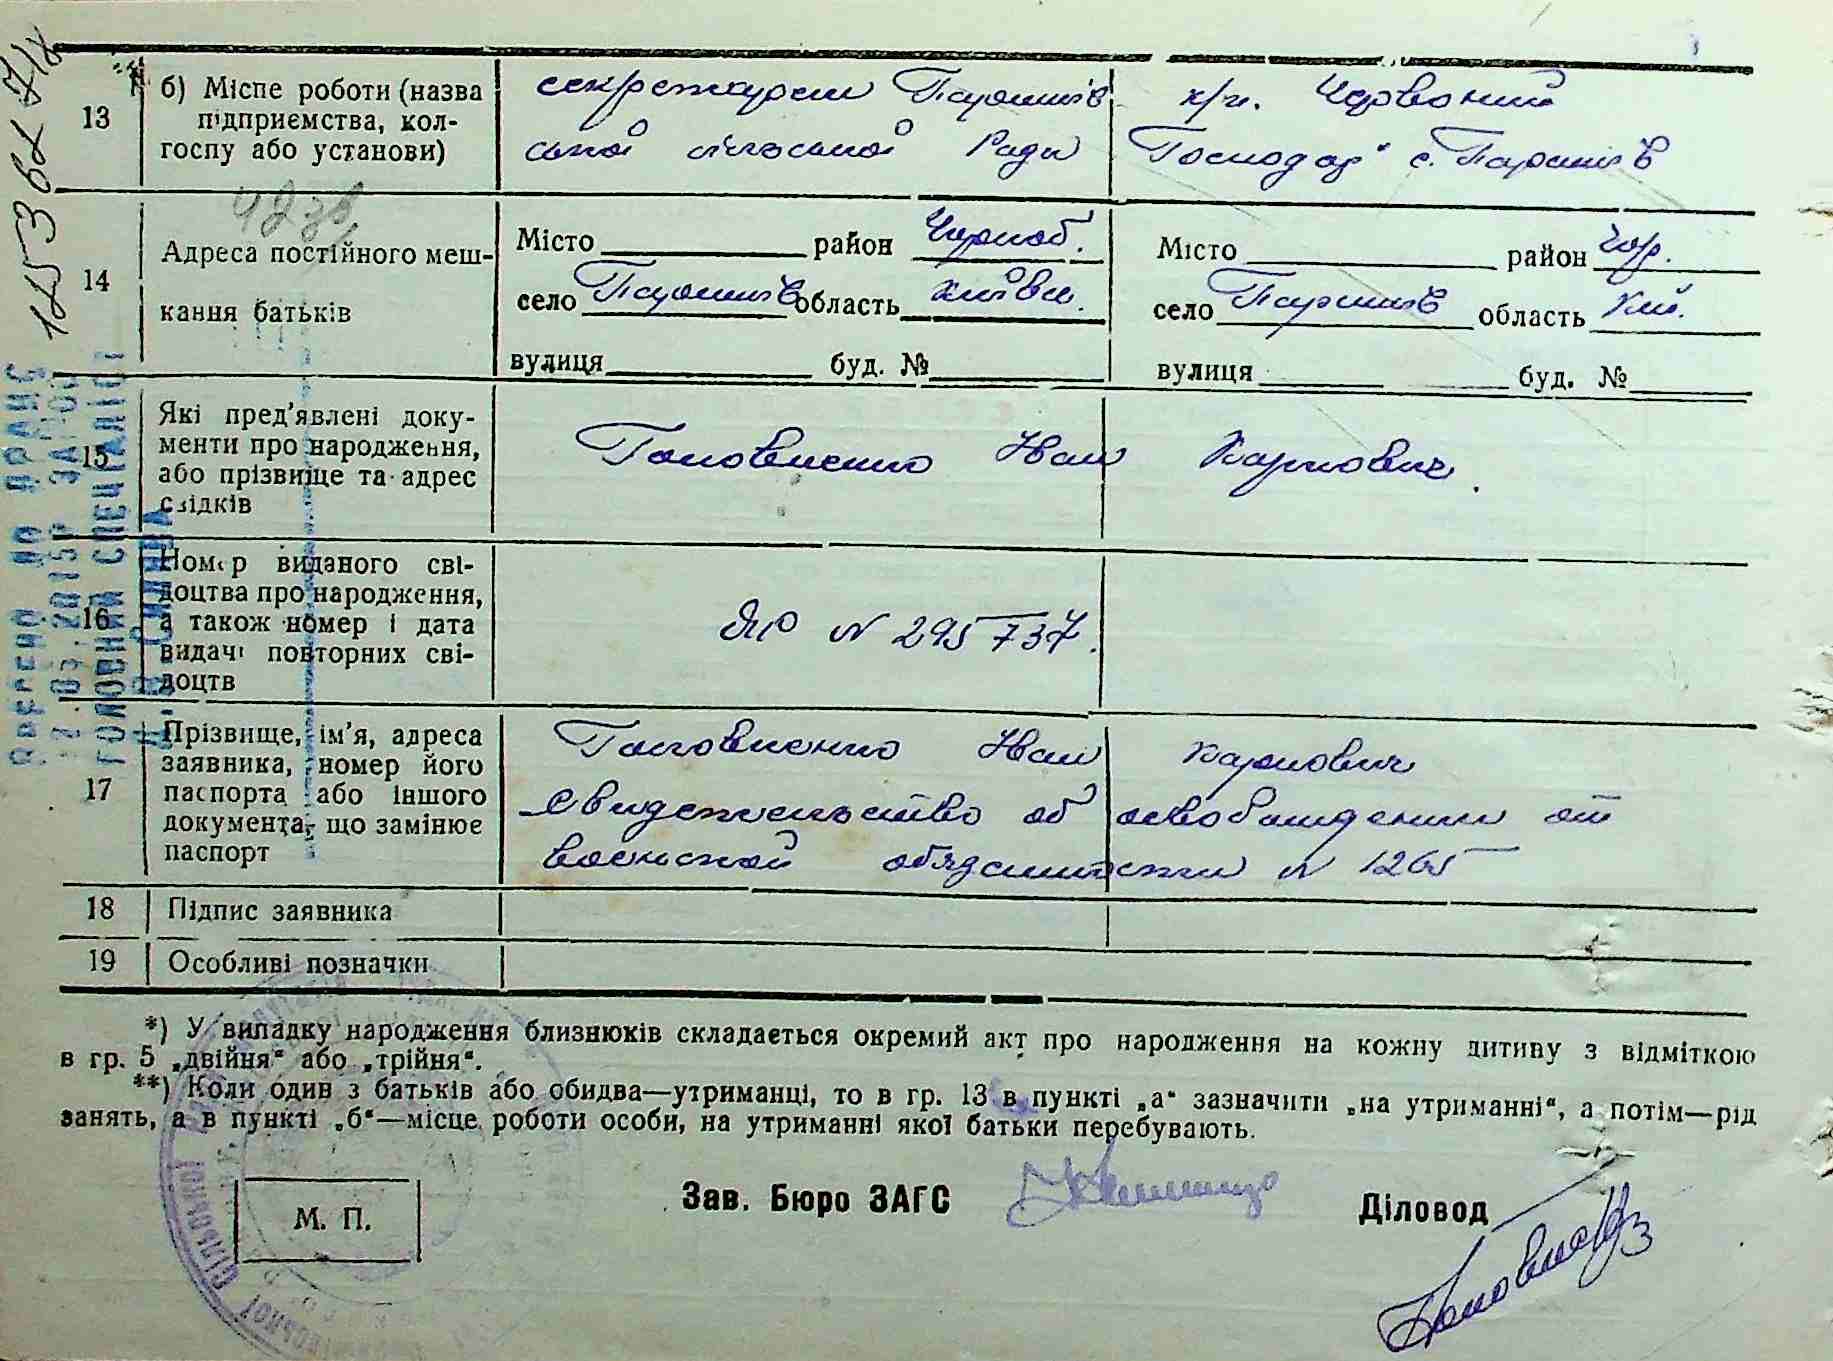 13
б) Місце роботи (назва
підприємства, кол-
госпу або установи)
секретарем Паришів
ської сільської Ради
к/г. Червоний
Господар" с. Паришів
14
Адреса постійного меш-
кання батьків
Місто район Чорноб.
село Паришів область Київськ.
вулиця буд. №
Місто район Чор.
село Паришів область Киї.
вулиця буд. №
15
Які пред'явлені доку-
менти про народження,
або прізвище та адрес
свідків
Головненко Иван Карпович.
16
Номер виданого сві-
доцтва про народження,
а також номер і дата
видачі повторних сві-
доцтв
ЯЮ N 295737.
17
Прізвище, ім'я, адреса
заявника, номер його
паспорта або іншого
документа, що замінює
паспорт
Головненко Иван Карпович
Свидетельство об освобождении от
воинской обязанности N 1265
18
Підпис заявника
19
Особливі позначки
*) У випадку народження близнюків складається окремий акт про народження на кожну дитину з відміткою
в гр. 5 „двійня“ або „трійня“.
**) Коли один з батьків або обидва—утриманці, то в гр. 13 в пункті „а“ зазначити „на утриманні“, а потім—рід
занять, а в пункті „б“—місце роботи особи, на утриманні якої батьки перебувають.
М. П.
Зав. Бюро ЗАГС
Діловод
ГОЛОВНИЙ СПЕЦІАЛІСТ